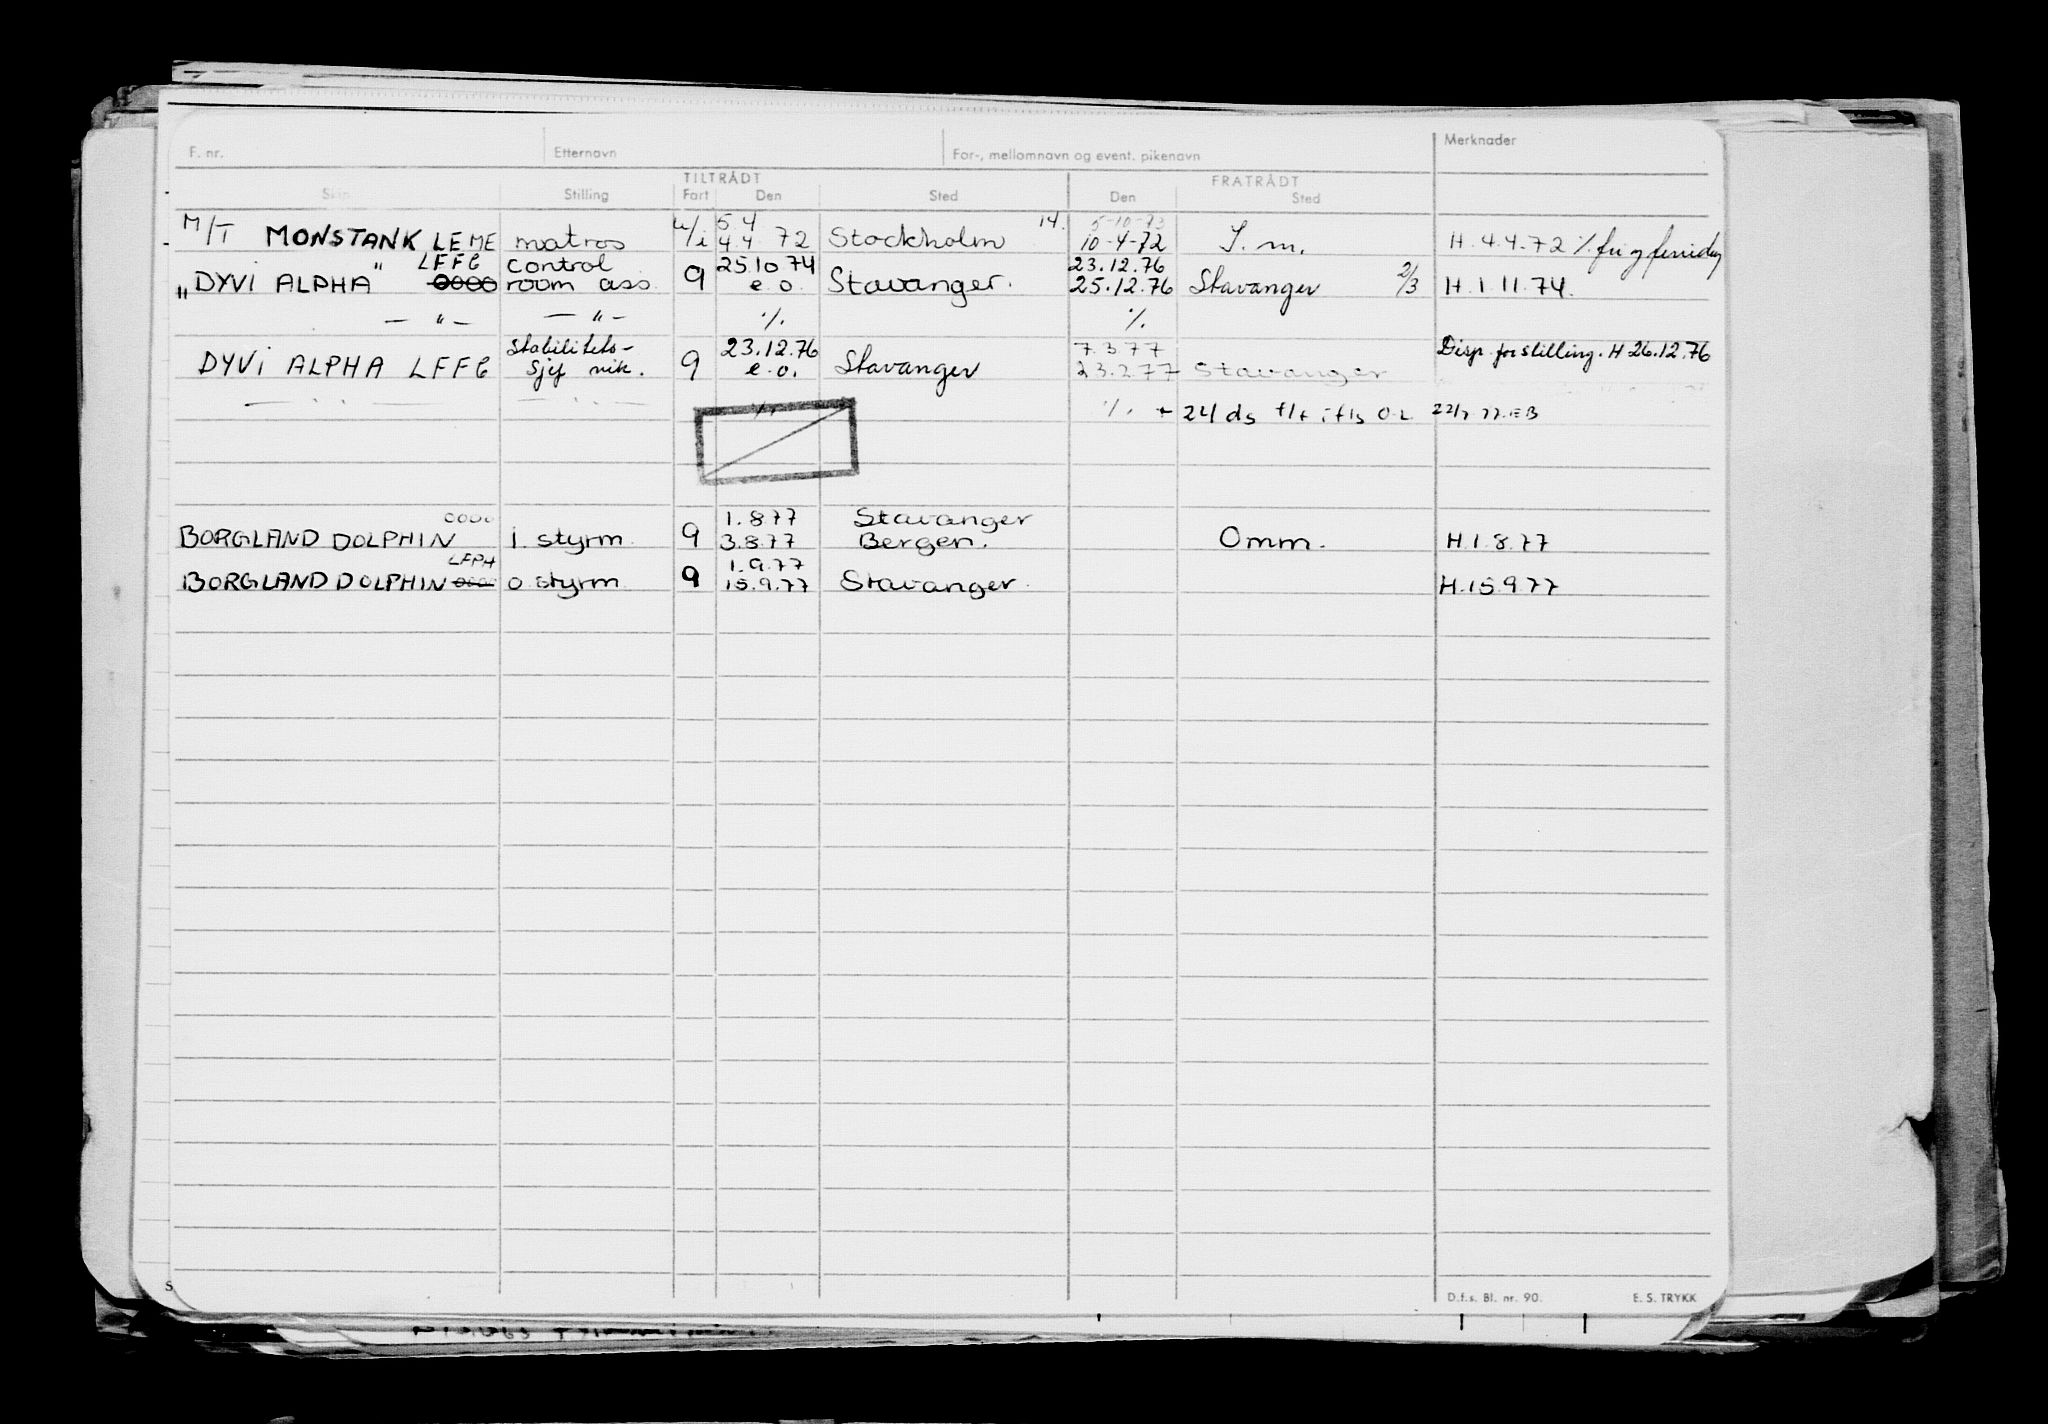 F. nr. Etternavn For-, mellomnavn og event. pikenavn Merknader
TILTRÅDT FRATRÅDT
Skip Stilling Fart Den Sted Den Sted
5 4 14. 5-10-73
M/T MONSTANK LEME matros u/i 4.4 72 Stockholm 10-4-72 S.m. H.4.4.72 %
LFFG control 25.10 74 23.12.76
"DYVI ALPHA" 0000 room ass. 9 e.o. Stavanger. 25.12.76 Stavanger 2/3 H.1.11.74.
— " — — " — % %
Stabilitets- 23.12.76 7.3.77 Disp. for stilling. H 26.12.76
DYVI ALPHA LFFG sjef vik. 9 e.o. Stavanger 23.2.77 Stavanger
— " — — " — % % + 24 ds
0000 1.8.77 Stavanger
BORGLAND DOLPHIN 1. styrm. 9 3.8.77 Bergen. Omm. H.1.8.77
LFPH 1.9.77
BORGLAND DOLPHIN 0000 o.styrm. 9 15.9.77 Stavanger. H.15.9.77
D.f.s. Bl. nr. 90. E. S. TRYKK